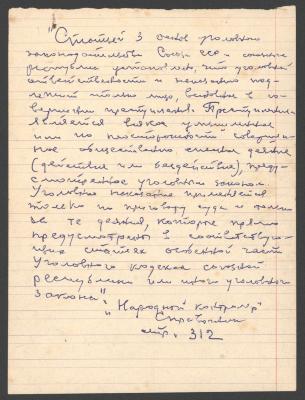 "Статьей 3 основ уголовного
законодательства Союза ССР и союзных
республик установлено, что уголовной
ответственности и наказанию под-
лежит только лицо, виновное в со-
вершении преступления. Преступлением
является виновно умышленное
или по неосторожности соверше-
нное общественно опасное деяние
(действие или бездействие), преду-
смотренное уголовным законом.
Уголовное наказание применяется
только по приговору суда и только
за те деяния, которые прямо
предусмотрены в соответствую-
щих статьях особенной части
Уголовного кодекса союзной
республики или иного уголовного
закона".
"Народный контроль"
Справочник
стр. 312